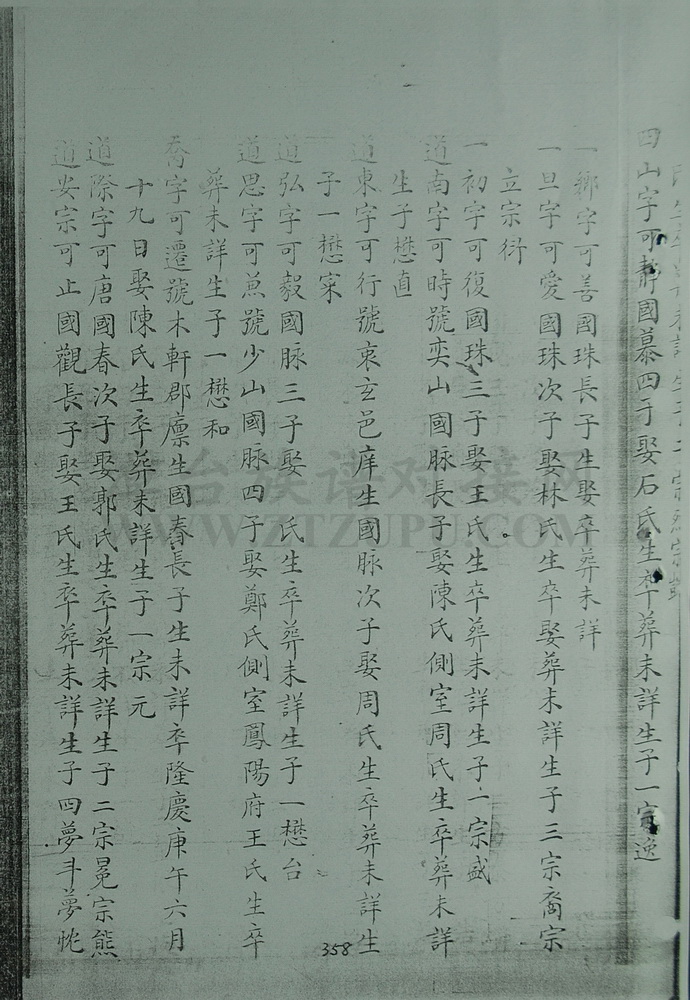 四山字可靜國慕四子娶石氏生卒葬未詳生子一宗逸
一鄉字可善國珠長子生娶卒葬未詳
一旦字可愛國珠次子娶林氏生卒娶葬未詳生子三宗裔宗
立宗衍
一初字可復國珠三子娶王氏生卒葬未詳生子一宗盛
道南字可時號奕山國脉長子娶陳氏側室周氏生卒葬未詳
生子懋直
道東字可行號東玄邑庠生國脉次子娶周氏生卒葬未詳生
子一懋宷
道弘字可毅國脉三子娶 氏生卒葬未詳生子一懋台
道思字可魚號少山國脉四子娶鄭氏側室鳳陽府王氏生卒
葬未詳生子一懋和
喬字可遷號木軒郡廪生國春長子生未詳卒隆慶庚午六月
十九日娶陳氏生卒葬未詳生子一宗元
道際字可唐國春次子娶郭氏生卒葬未詳生子二宗冕宗熊
道安宗可止國觀長子娶王氏生卒葬未詳生子四夢斗夢忱
358
台族谱对接网
WWW.ZTZUPU.COM